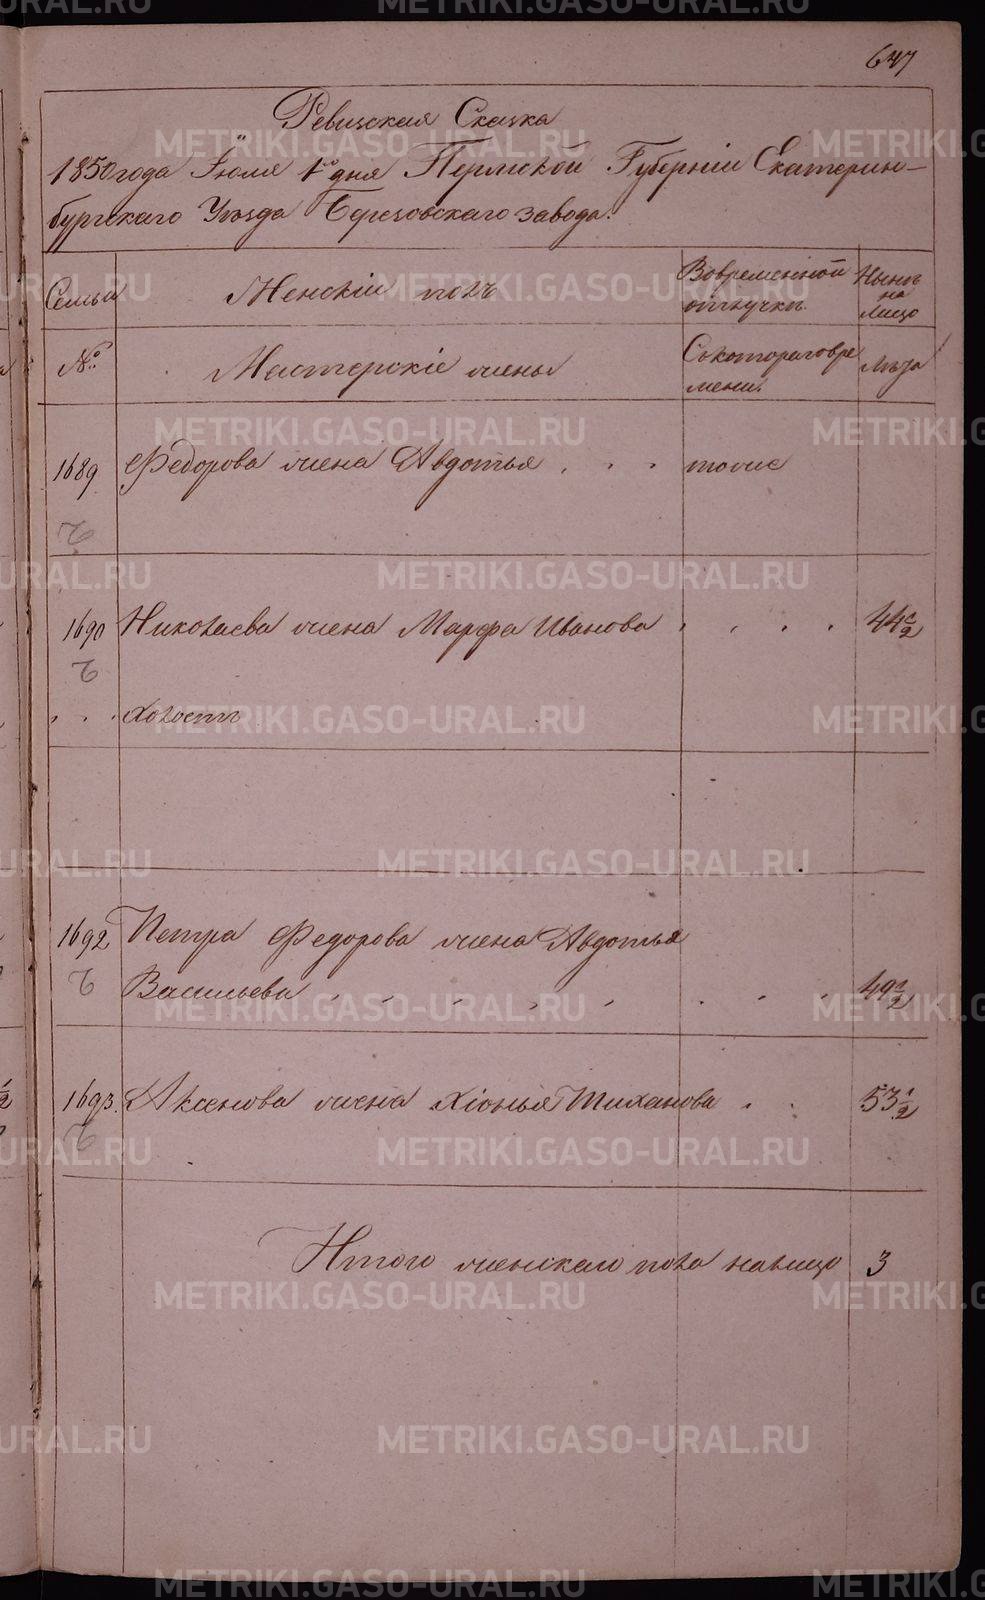 647
Ревизская Сказка
1850 года Іюля 1го дня Пермской Губерніи Екатерин-
бургскаго Уѣзда Березовскаго завода.
Семьи
Женскій полъ
Вовременной отлучкѣ
Нынѣ на лицо
№
Мастерскіе жены
Съкотораговре мени.
Лѣта
1689
Федорова жена Авдотья
тоже
1690
Николаева жена Марфа Иванова
44 1/2
Холостъ
1692
Петра Федорова жена Авдотья
Васильева
49 1/2
1693.
Аксенова жена Хіонья Тиханова
53 1/2
Итого женскаго пола налицо 3
METRIKI.GASO-URAL.RU